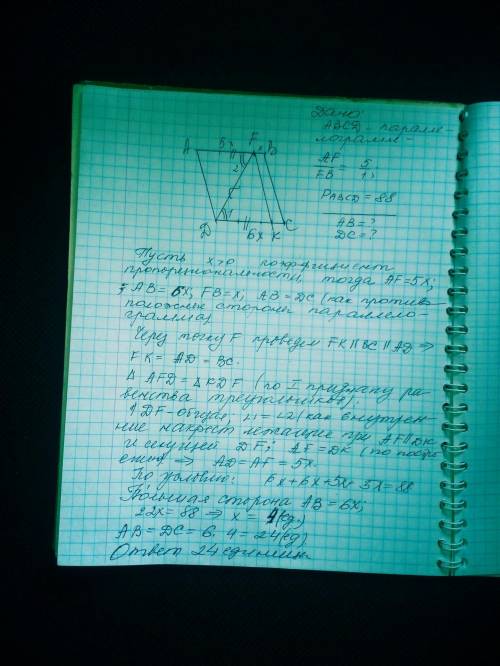 Дано:
ABCD - паралле-
лограмм
AF/FB = 5/1;
P ABCD = 88
AB = ?
DC = ?
A 5x F x B
2
1
D 6x K C
Пусть x>0 коэффициент
пропорциональности, тогда AF=5x;
AB = 6x, FB=x, AB = DC (как противо-
положные стороны параллело-
грамма)
Через точку F проведем FK || BC || AD ⇒
FK = AD = BC.
Δ AFD = Δ KDF (по I признаку ра-
венства треугольников);
1) DF - общая, ∠1 = ∠2 (как внутрен-
ние накрест лежащие при AF || DK
и секущей DF; AF = DK (по постро-
ению) ⇒ AD = AF = 5x
По условию: 6x+6x+5x+5x=88
Большая сторона AB = 6x;
22x = 88 ⇒ x = 4(ед)
AB = DC = 6 · 4 = 24(ед)
Ответ 24 единицы